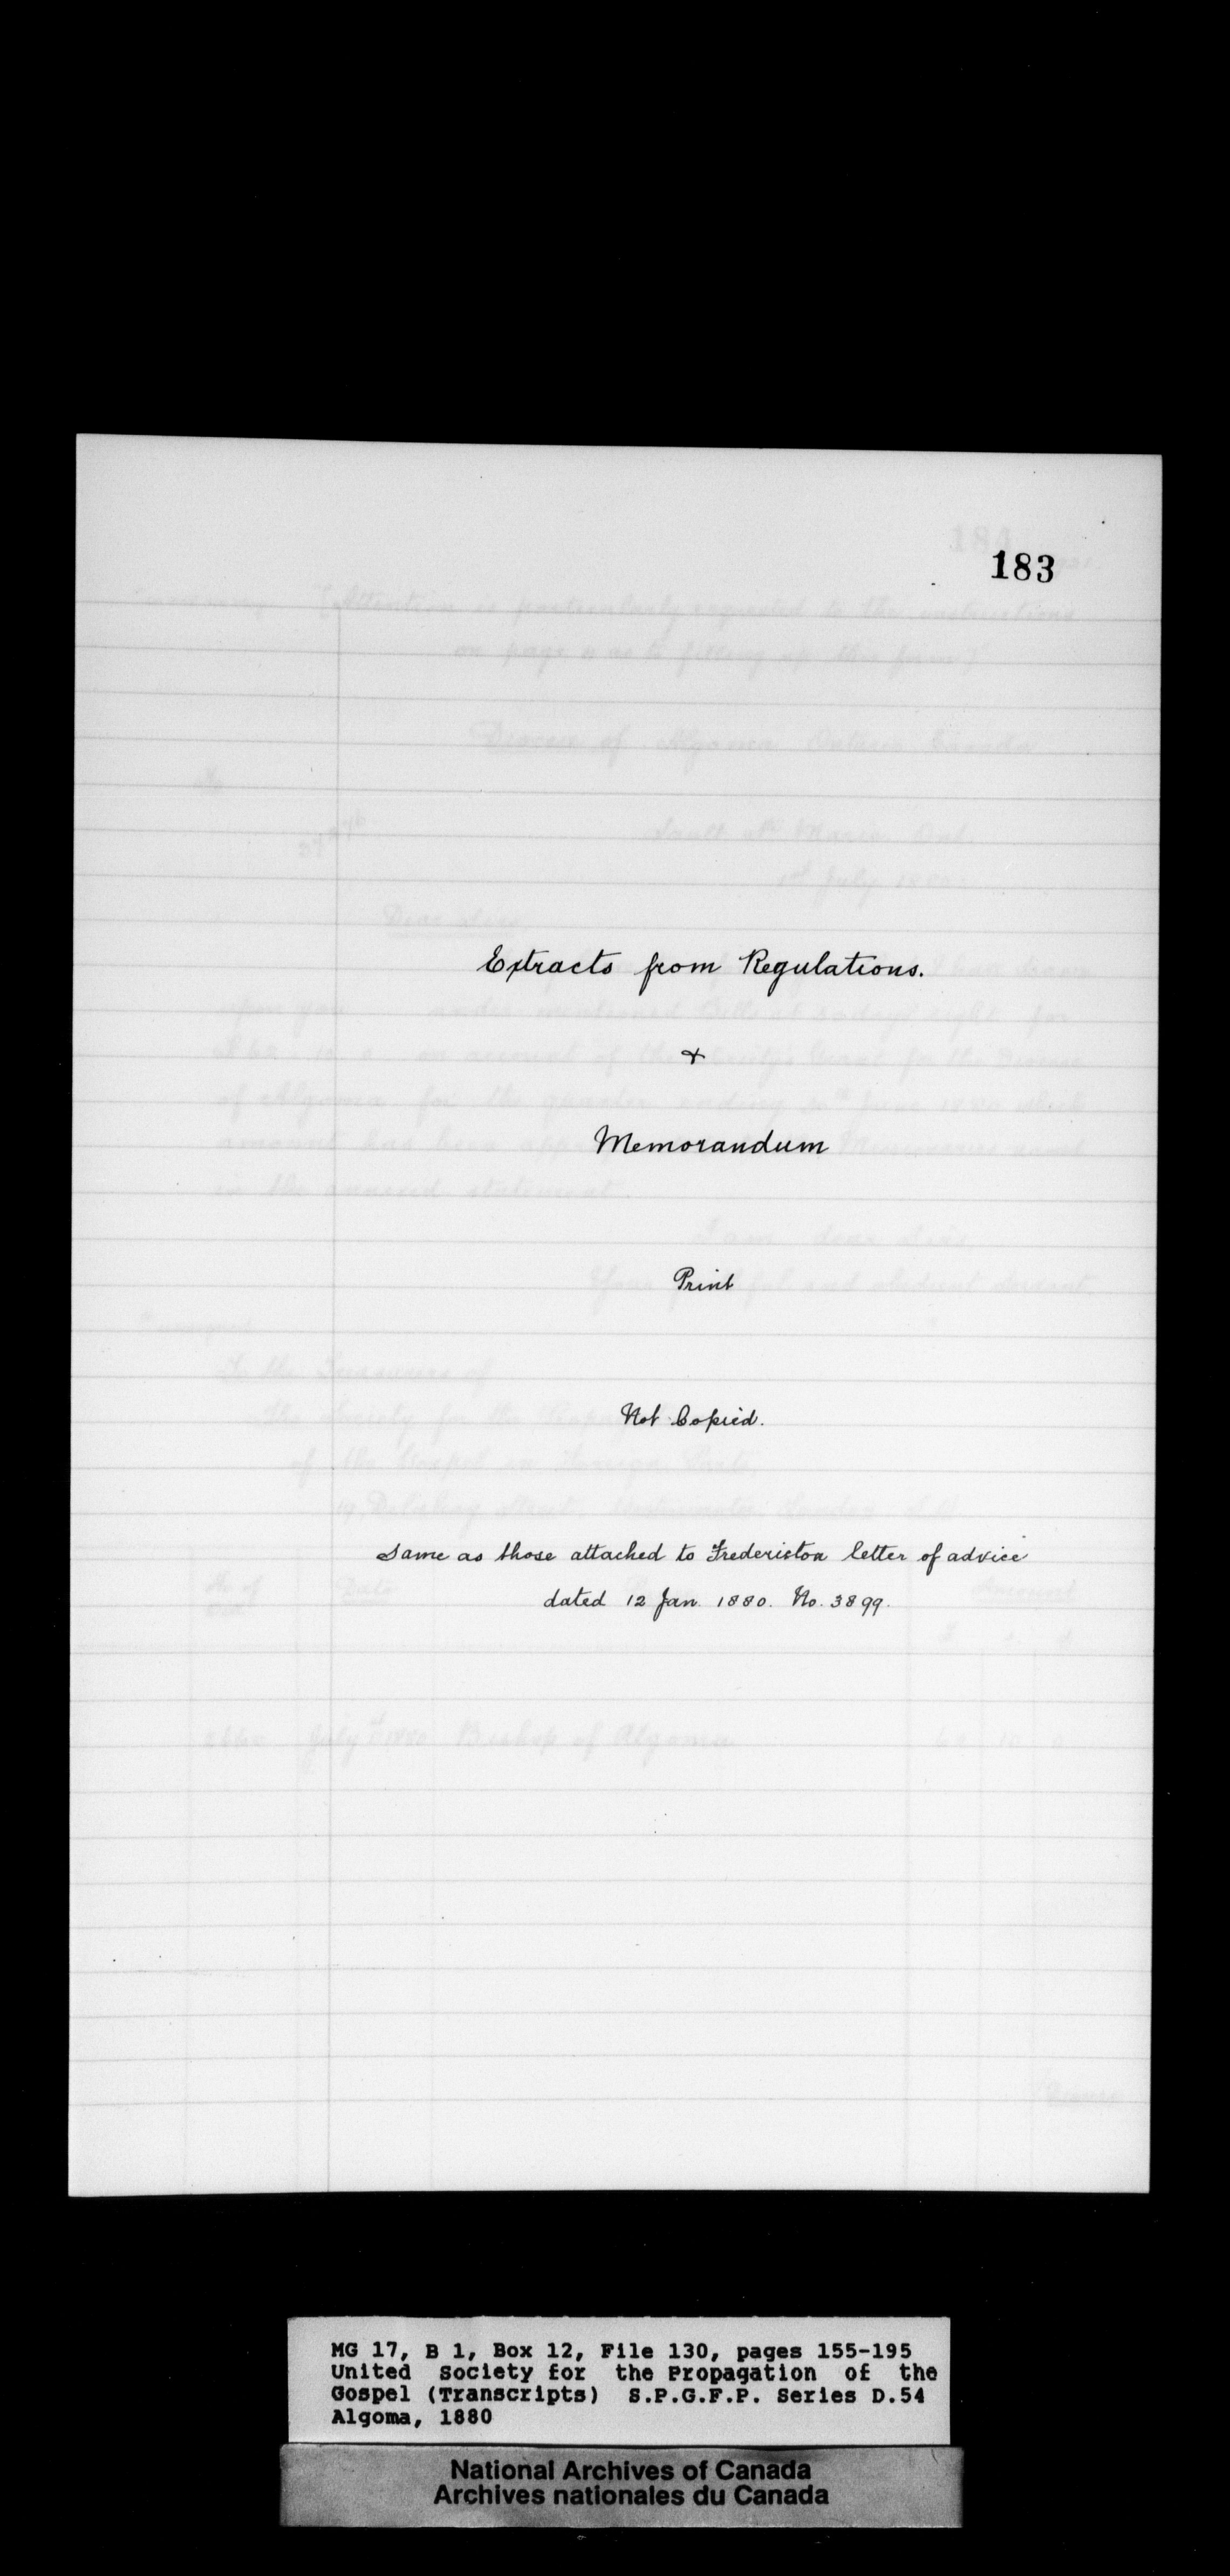 183
Extracts from Regulations.
&
Memorandum
Print
Not Copied.
Same as those attached to Fredericton letter of advice
dated 12 Jan. 1880. No. 3899.
MG 17, B 1, Box 12, File 130, pages 155-195
United Society for the Propagation of the
Gospel (Transcripts) S.P.G.F.P. Series D.54
Algoma, 1880
National Archives of Canada
Archives nationales du Canada